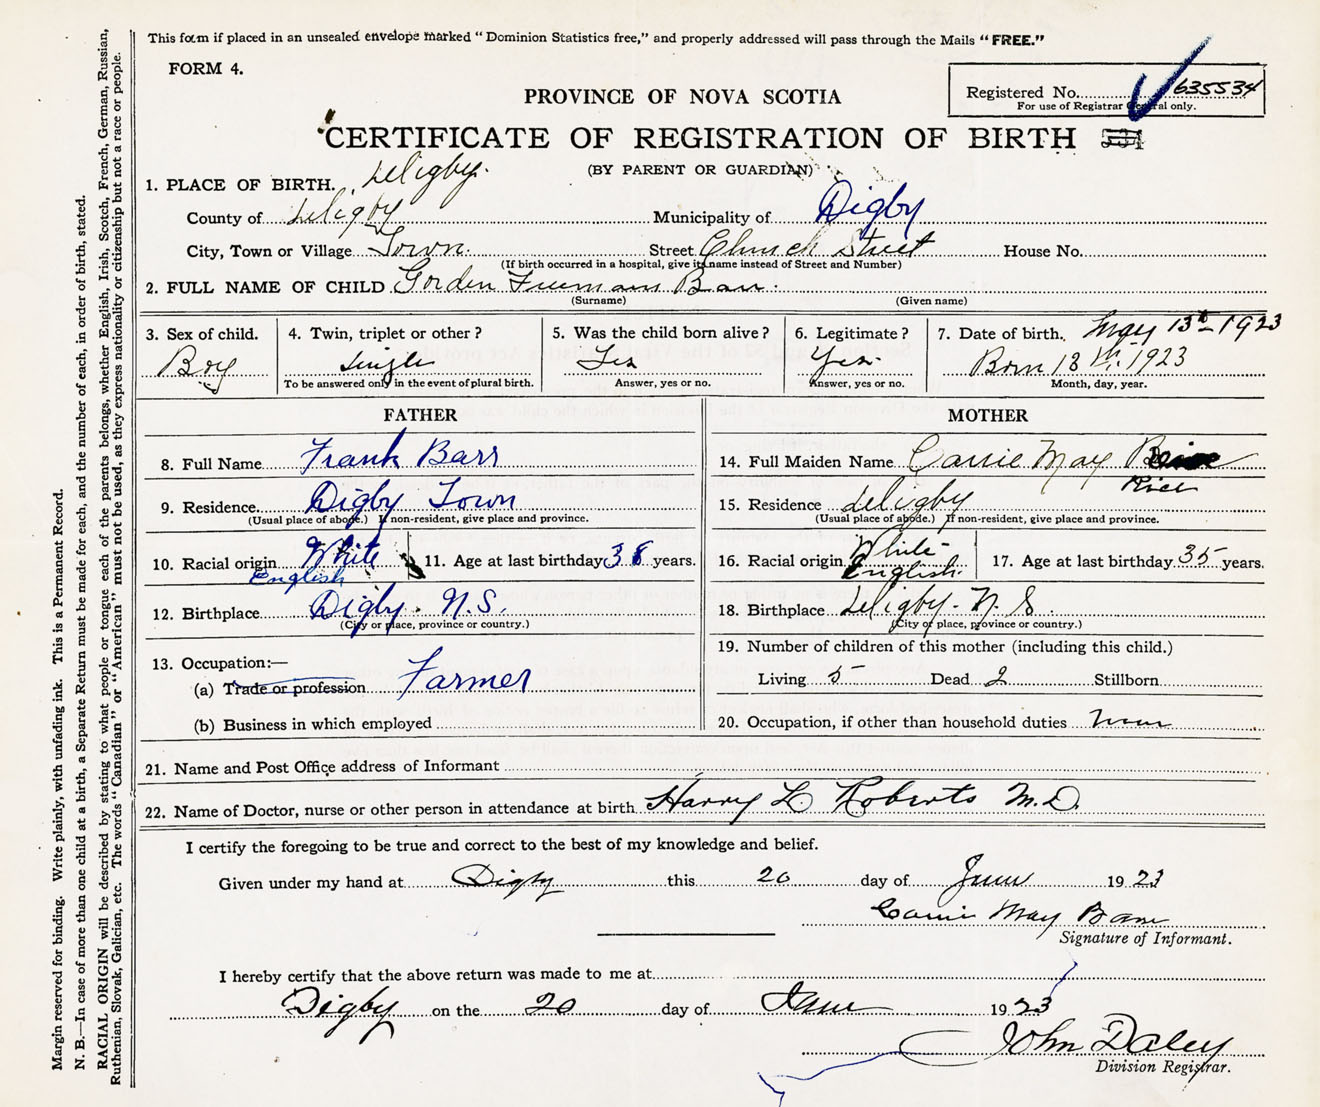 This form if placed in an unsealed envelope marked "Dominion Statistics free," and properly addressed will pass through the Mails "FREE."
FORM 4.
Registered No. 635534
For use of Registrar General only.
PROVINCE OF NOVA SCOTIA
CERTIFICATE OF REGISTRATION OF BIRTH
(BY PARENT OR GUARDIAN)
1. PLACE OF BIRTH. Digby.
County of Digby Municipality of Digby
City, Town or Village Town. Street Church Street House No.
(If birth occurred in a hospital, give its name instead of Street and Number)
2. FULL NAME OF CHILD Gorden Freeman Barr.
(Surname) (Given name)
3. Sex of child. 4. Twin, triplet or other? 5. Was the child born alive? 6. Legitimate? 7. Date of birth. May 13th 1923
Boy Single Yes Yes. Born 13th. 1923
To be answered only in the event of plural birth. Answer, yes or no. Answer, yes or no. Month, day, year.
FATHER MOTHER
8. Full Name Frank Barr 14. Full Maiden Name Carrie May
Rice
9. Residence. Digby Town 15. Residence Digby
(Usual place of abode.) If non-resident, give place and province. (Usual place of abode.) If non-resident, give place and province.
10. Racial origin White 11. Age at last birthday 38 years. 16. Racial origin White 17. Age at last birthday 35 years.
English English.
12. Birthplace Digby. N.S. 18. Birthplace Digby. N.S.
(City or place, province or country.) (City or place, province or country.)
13. Occupation:— 19. Number of children of this mother (including this child.)
(a) Trade or profession Farmer Living 5 Dead 2 Stillborn
(b) Business in which employed 20. Occupation, if other than household duties None
21. Name and Post Office address of Informant
22. Name of Doctor, nurse or other person in attendance at birth Harry L Roberts M.D.
I certify the foregoing to be true and correct to the best of my knowledge and belief.
Given under my hand at Digby this 20 day of June 1923
Carrie May Barr
Signature of Informant.
I hereby certify that the above return was made to me at
Digby on the 20 day of June 1923
John Daley
Division Registrar.
Margin reserved for binding. Write plainly, with unfading ink. This is a Permanent Record.
N. B.—In case of more than one child at a birth, a Separate Return must be made for each, and the number of each, in order of birth, stated.
RACIAL ORIGIN will be described by stating to what people or tongue each of the parents belongs, whether English, Irish, Scotch, French, German, Russian,
Ruthenian, Slovak, Galician, etc. The words "Canadian" or "American" must not be used, as they express nationality or citizenship but not a race or people.